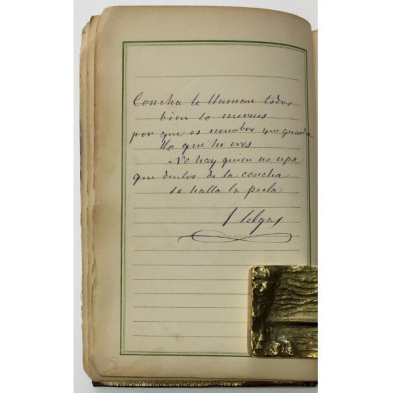 Concha te llaman todos
bien lo mereces
por que es nombre que guarda
lo que tu eres
No hay quien no sepa
que dentro de la concha
se halla la perla
J Selgas